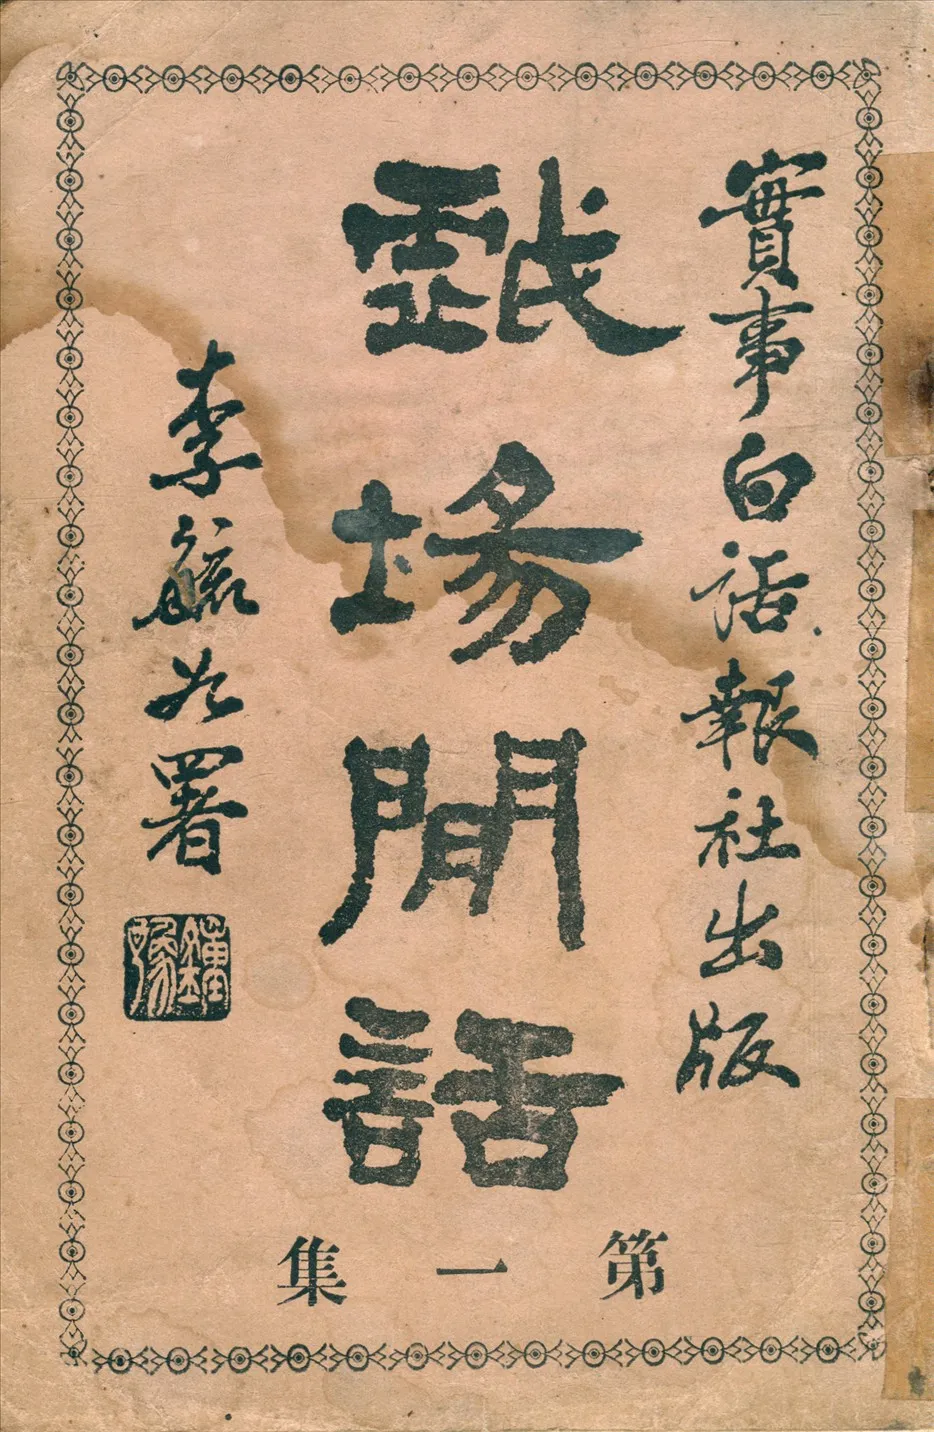 實事白話報社出版
戲場閒話
李毓如署
鍾豫
第一集